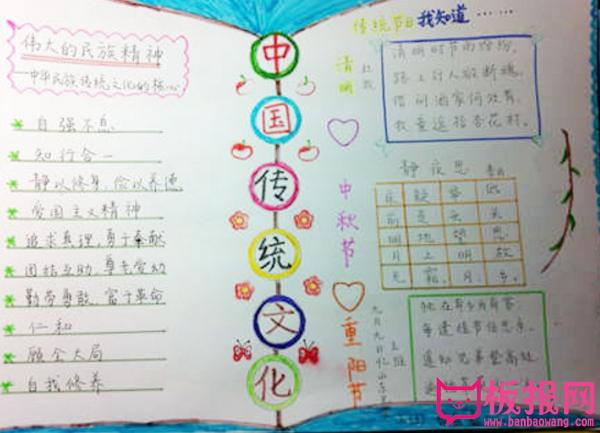 伟大的民族精神
—中华民族传统文化的核心
自强不息
知行合一
静以修身,俭以养德
爱国主义精神
追求真理,勇于奉献
团结互助,尊老爱幼
勤劳勇敢,富于革命
仁和
顾全大局
自我修养
中
国
传
统
文
化
传统节日我知道……
清明
清明时节雨纷纷,
路上行人欲断魂,
借问酒家何处有,
牧童遥指杏花村。
中秋节
静夜思
床 疑 举 低
前 是 头 头
明 地 望 思
月 上 明 故
光 霜。 月, 乡。
重阳节
九月九日忆山东兄
王维
独在异乡为异客,
每逢佳节倍思亲。
遥知兄弟登高处
板报网
www.banbaowang.com